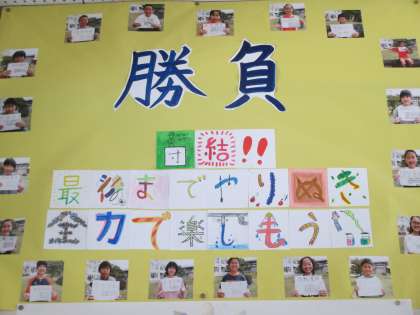 勝負
団結!!
最後までやりぬき
全力で楽しもう